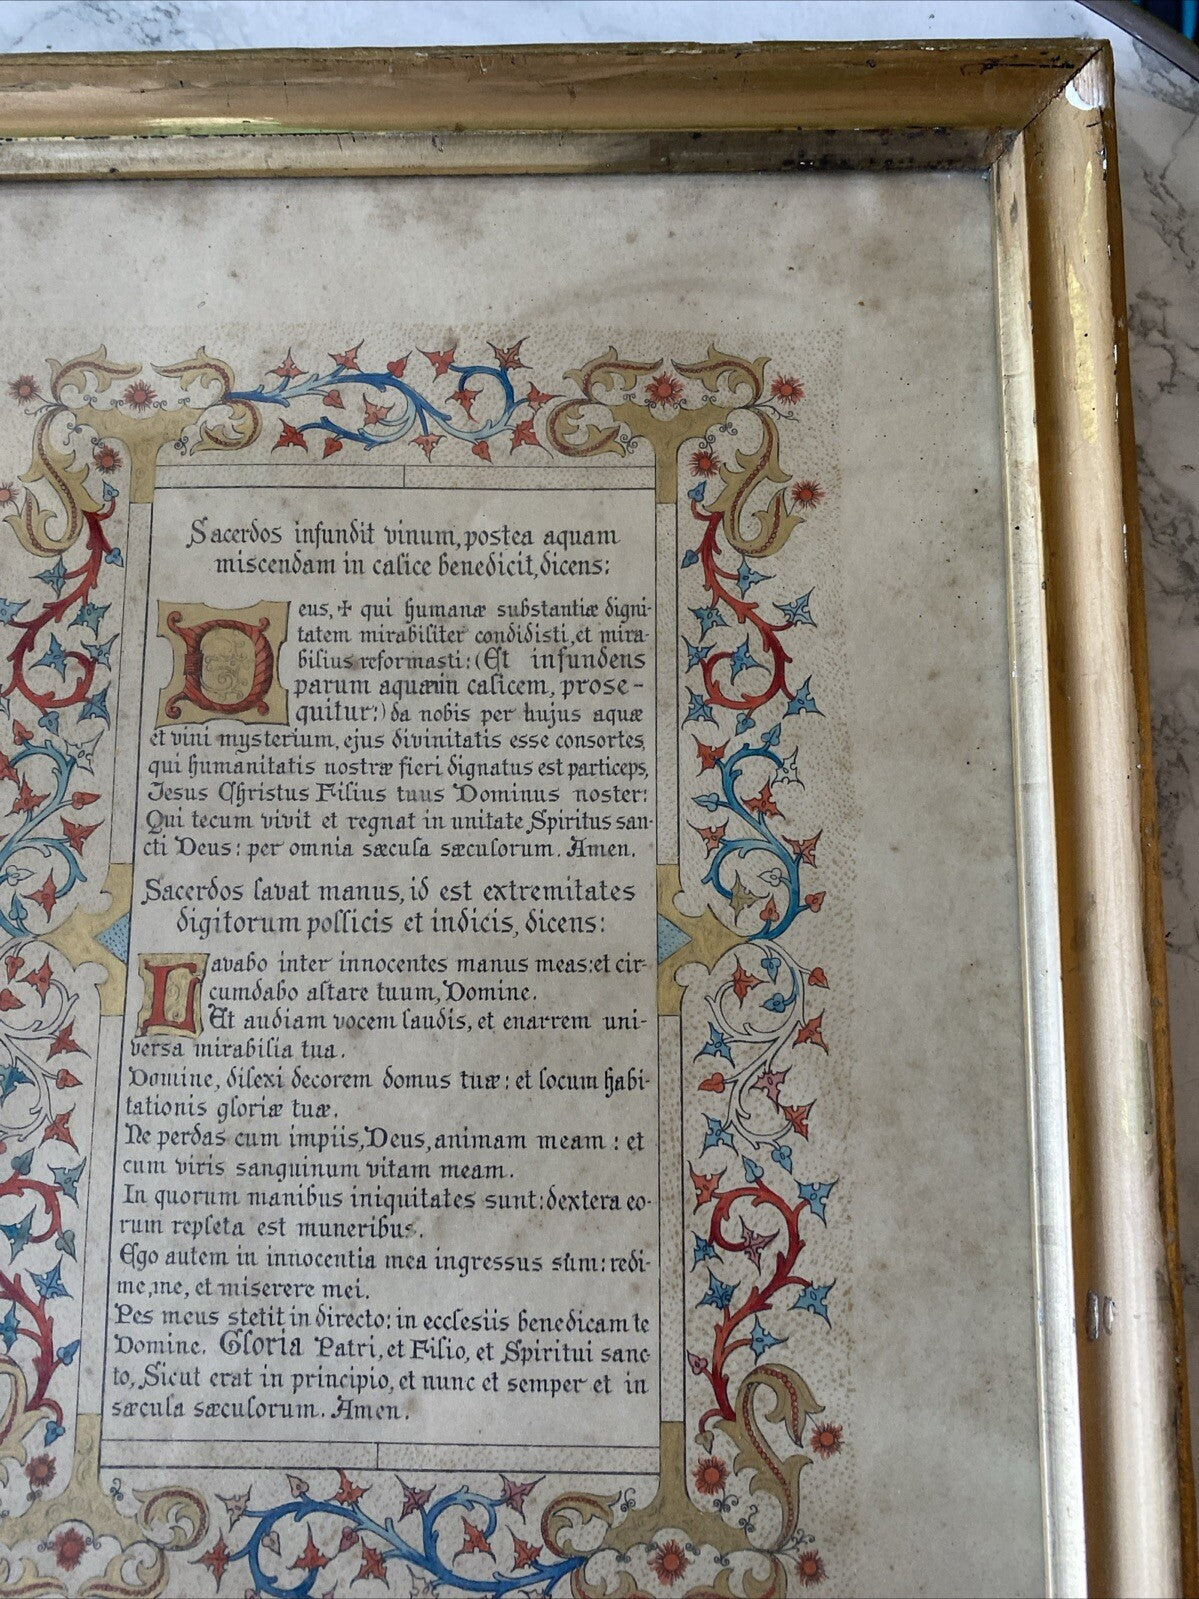 Sacerdos infundit vinum, postea aquam
miscendam in calice benedicit, dicens:
Deus, ✝ qui humanæ substantiæ digni-
tatem mirabiliter condidisti, et mira-
bilius reformasti: (Et infundens
parum aquæ in calicem, prose-
quitur:) da nobis per hujus aquæ
et vini mysterium, ejus divinitatis esse consortes,
qui humanitatis nostræ fieri dignatus est particeps,
Jesus Christus Filius tuus Dominus noster:
Qui tecum vivit et regnat in unitate Spiritus san-
cti Deus: per omnia sæcula sæculorum. Amen.
Sacerdos lavat manus, id est extremitates
digitorum pollicis et indicis, dicens:
Lavabo inter innocentes manus meas: et cir-
cumdabo altare tuum, Domine.
Et audiam vocem laudis, et enarrem uni-
versa mirabilia tua.
Domine, dilexi decorem domus tuæ: et locum habi-
tationis gloriæ tuæ.
Ne perdas cum impiis, Deus, animam meam: et
cum viris sanguinum vitam meam.
In quorum manibus iniquitates sunt: dextera eo-
rum repleta est muneribus.
Ego autem in innocentia mea ingressus sum: redi-
me, me, et miserere mei.
Pes meus stetit in directo: in ecclesiis benedicam te
Domine. Gloria Patri, et Filio, et Spiritui sanc
to, Sicut erat in principio, et nunc et semper et in
sæcula sæculorum. Amen.